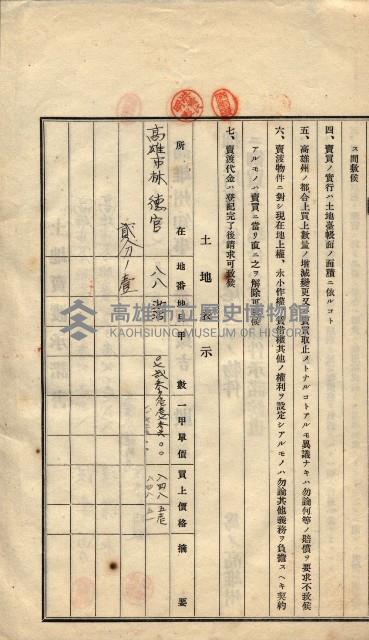 ス間敷候
四、賣買ノ實行ハ土地臺帳面ノ面積ニ依ルコト
五、高雄州ノ都合上買上數量ノ增減變更又ハ賣買取止メトナルコトアルモ異議ナキハ勿論何等ノ賠償ヲ要求不致候
六、賣渡物件ニ對シ現在地上權、永小作權、其他ノ權利ヲ設定シアルモノハ勿論其他義務ヲ負擔スヘキ契約
アルモノハ賣買ニ當リ直ニ之ヲ解除可致候
七、賣渡代金ハ登記完了後請求可致候
土地表示
所在 地番 地目 甲數 一甲單價 買上價格 摘要
高雄市林德官 八八
貳分ノ壹
高雄市立歷史博物館
KAOHSIUNG MUSEUM OF HISTORY